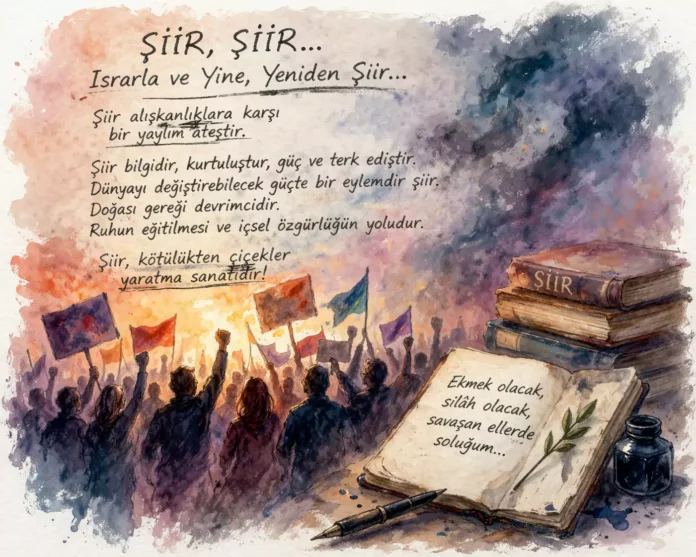 ŞİİR, ŞİİR...
Israrla ve Yine, Yeniden Şiir...
Şiir alışkanlıklara karşı
bir yaylım ateştir.
Şiir bilgidir, kurtuluştur, güç ve terk ediştir.
Dünyayı değiştirebilecek güçte bir eylemdir şiir.
Doğası gereği devrimcidir.
Ruhun eğitilmesi ve içsel özgürlüğün yoludur.
Şiir, kötülükten çiçekler
yaratma sanatıdır!
ŞİİR
Ekmek olacak,
silâh olacak,
savaşan ellerde
soluğum...